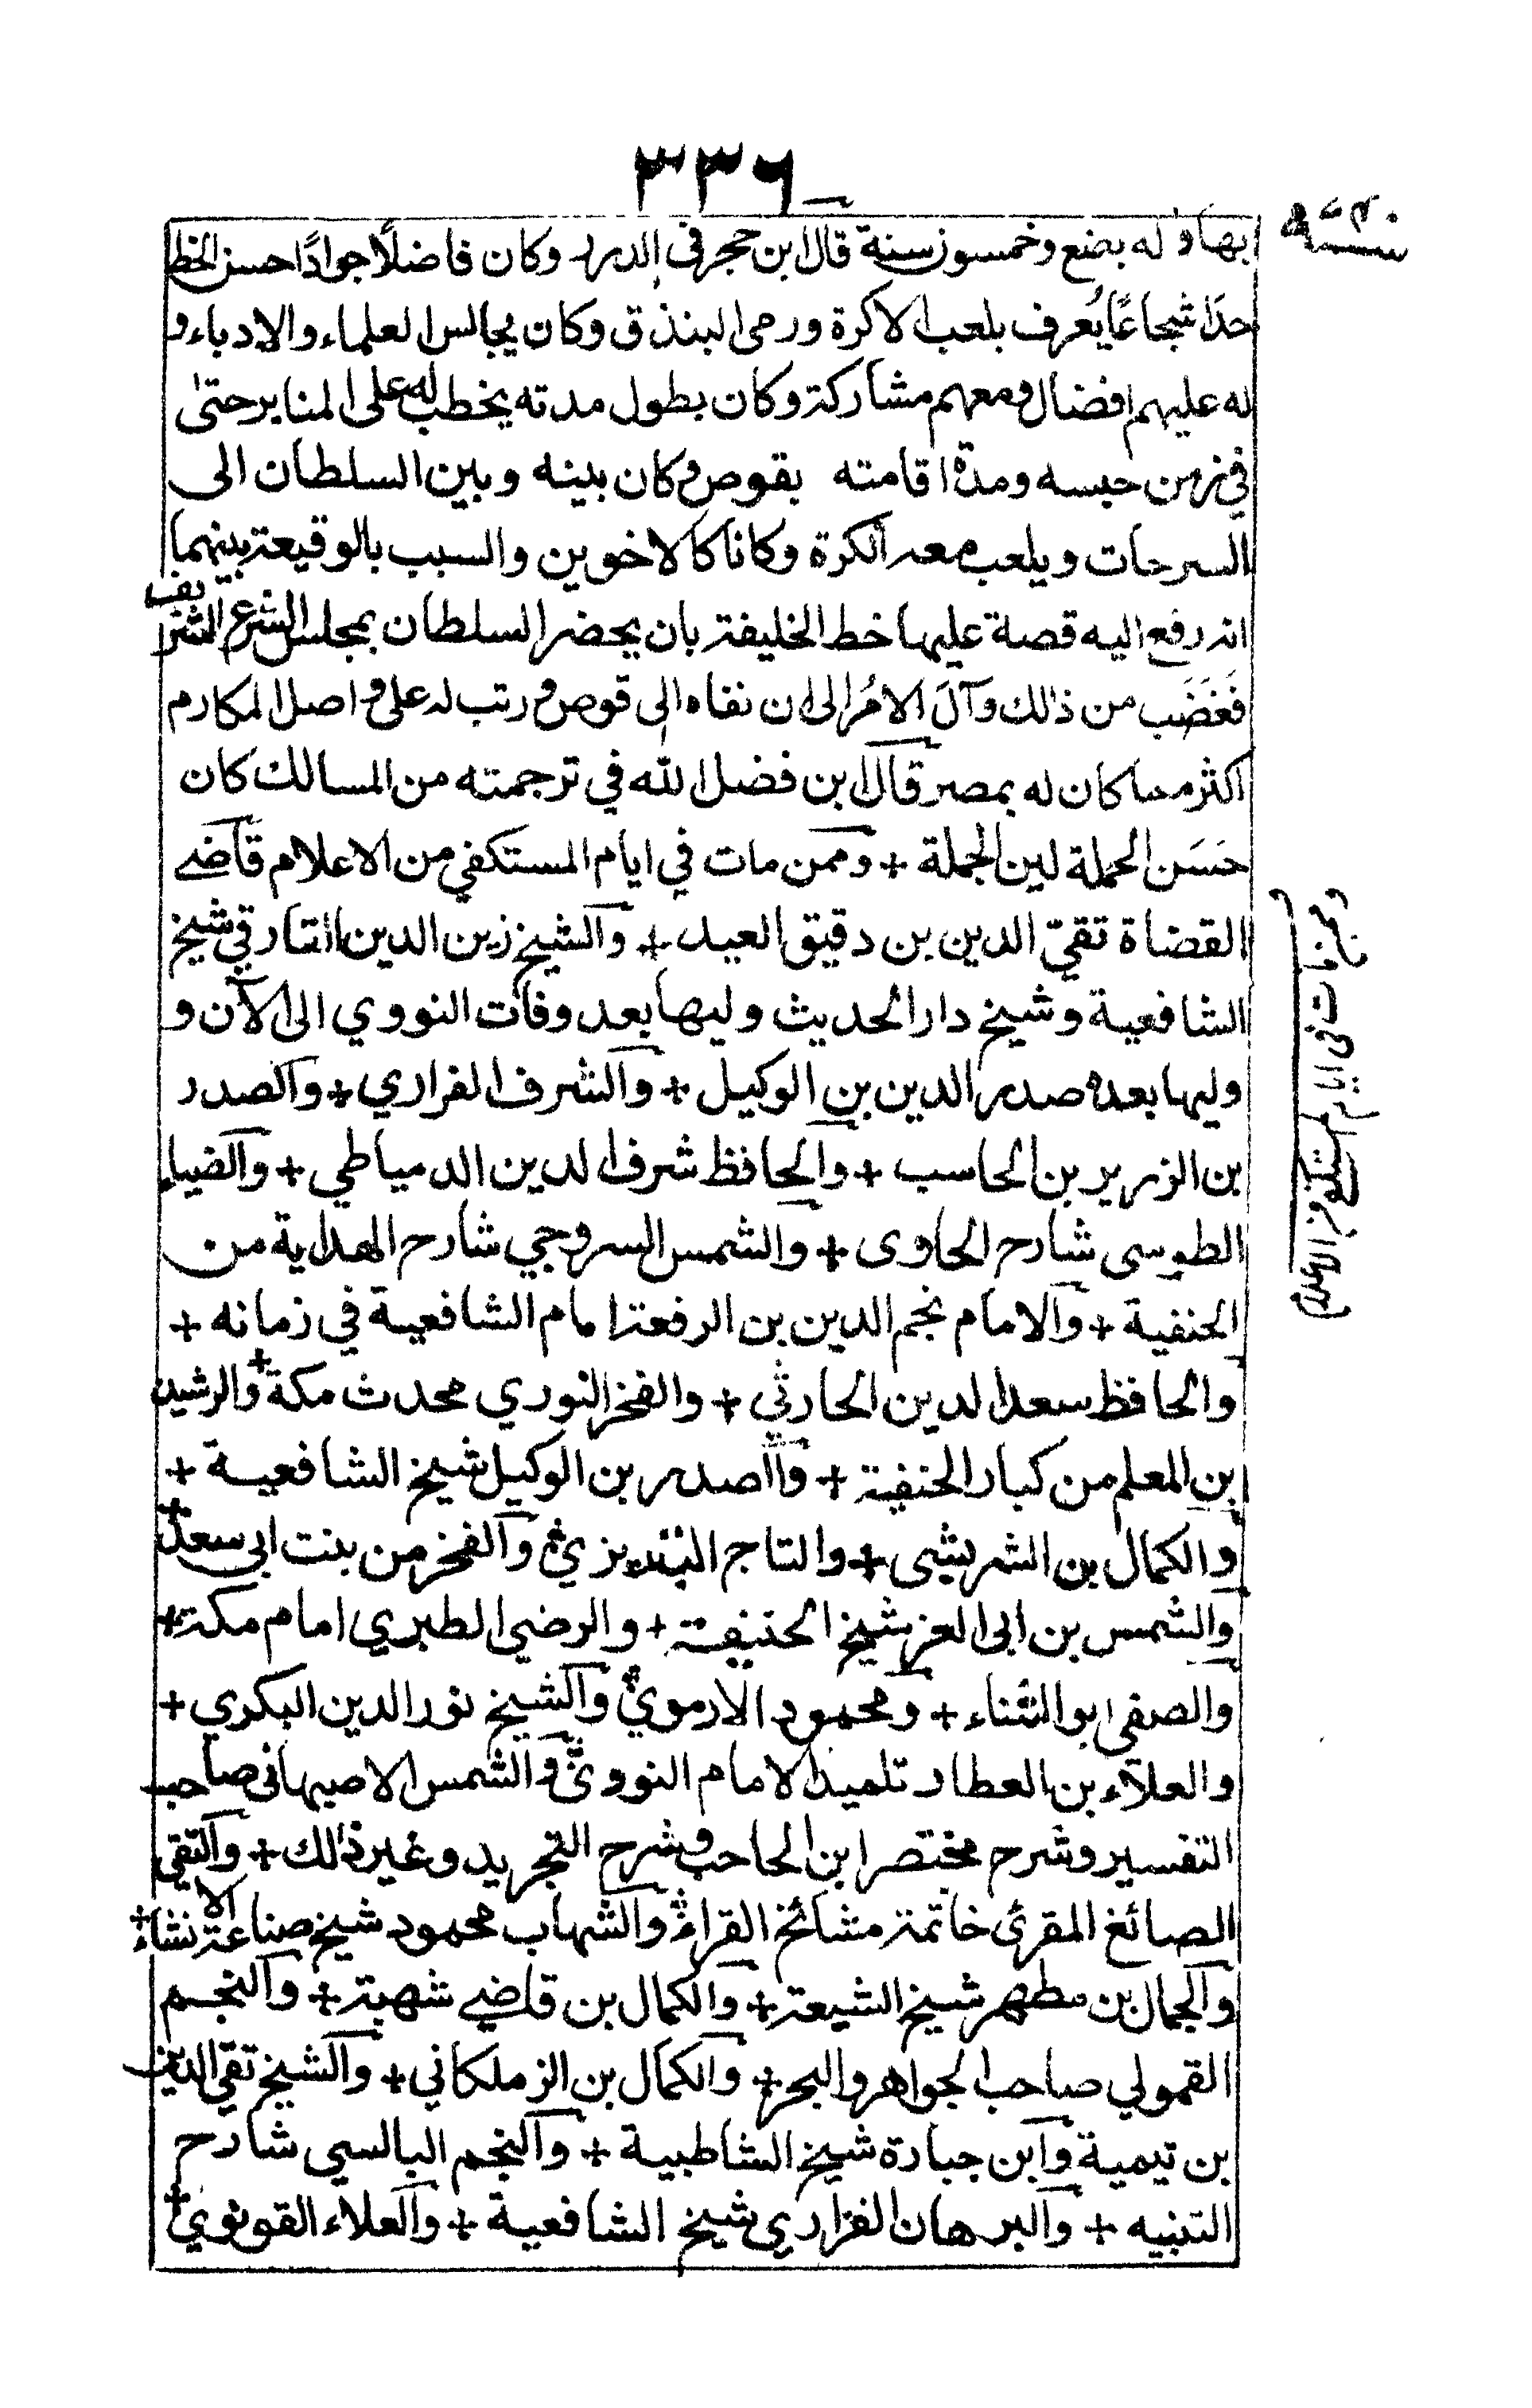 ٣٣٦
بها وله بضع وخمسون سنة قال ابن حجر في الدرر وكان فاضلًا جوادًا حسن الخط
جدا شجاعًا يُعرف بلعب الاكرة ورمى البندق وكان يجالس العلماء والادباء و
له عليهم افضال ومعهم مشاركة وكان بطول مدته يخطب له على المنابر حتى
في زمن حبسه ومدة اقامته بقوص وكان بينه وبين السلطان الى
السرحات ويلعب معه الكرة وكانا كالاخوين والسبب بالوقيعة بينهما
انه رفع اليه قصة عليها خط الخليفة بان يحضر السلطان بمجلس الشرع الشريف
فَغَضَب من ذالك وآلَ الامُر الى ان نفاه الى قوص ورتب له على واصل المكارم
اكثر مما كان له بمصر قال ابن فضل الله في ترجمته من المسالك كان
حَسَن الحملة لين الجملة + وممن مات في ايام المستكفي من الاعلام قاضي
القضاة تقيّ الدين بن دقيق العيد + والشيخ زين الدين الفارقي شيخ
الشافعية وشيخ دار الحديث وليها بعد وفات النووي الى الآن و
وليها بعده صدر الدين بن الوكيل + والشرف الفراري + والصدر
بن الزرير بن الحاسب + والحافظ شرف الدين الدمياطي + والضياء
الطوسى شارح الحاوى + والشمس السروجي شارح الهداية من
الحنفية + والامام نجم الدين بن الرفعة امام الشافعية في زمانه +
والحافظ سعد الدين الحارثي + والفخر النوري محدث مكة + والرشيد
بن المعلم من كبار الحنفية + والصدر بن الوكيل شيخ الشافعية +
والكمال بن الشريشى + والتاج التبريزي + والفخر من بنت ابي سعد +
والشمس بن ابى العز شيخ الحنيفة + والرضي الطبري امام مكة +
والصفى ابو الثناء + ومحمود الارموي + والشيخ نور الدين البكري +
والعلاء بن العطار تلميذ الامام النووي + والشمس الاصبهانى صاحب
التفسير وشرح مختصر ابن الحاحب وشرح التجريد وغير ذالك + والتقي
الصائغ المقرئ خاتمة مشائخ القراء + والشهاب محمود شيخ صناعة الانشاء +
والجمال بن مطهر شيخ الشيعة + والكمال بن قاضي شهبة + والنجم
القمولي صاحب الجواهر والبحر + والكمال بن الزملكاني + والشيخ تقي الدين
بن تيمية وابن جبارة شيخ الشاطبية + والنجم البالسي شارح
التنبيه + والبرهان الفزاري شيخ الشافعية + والعلاء القونوي +
ومن مات فى ايام المستكفى من الاعلام